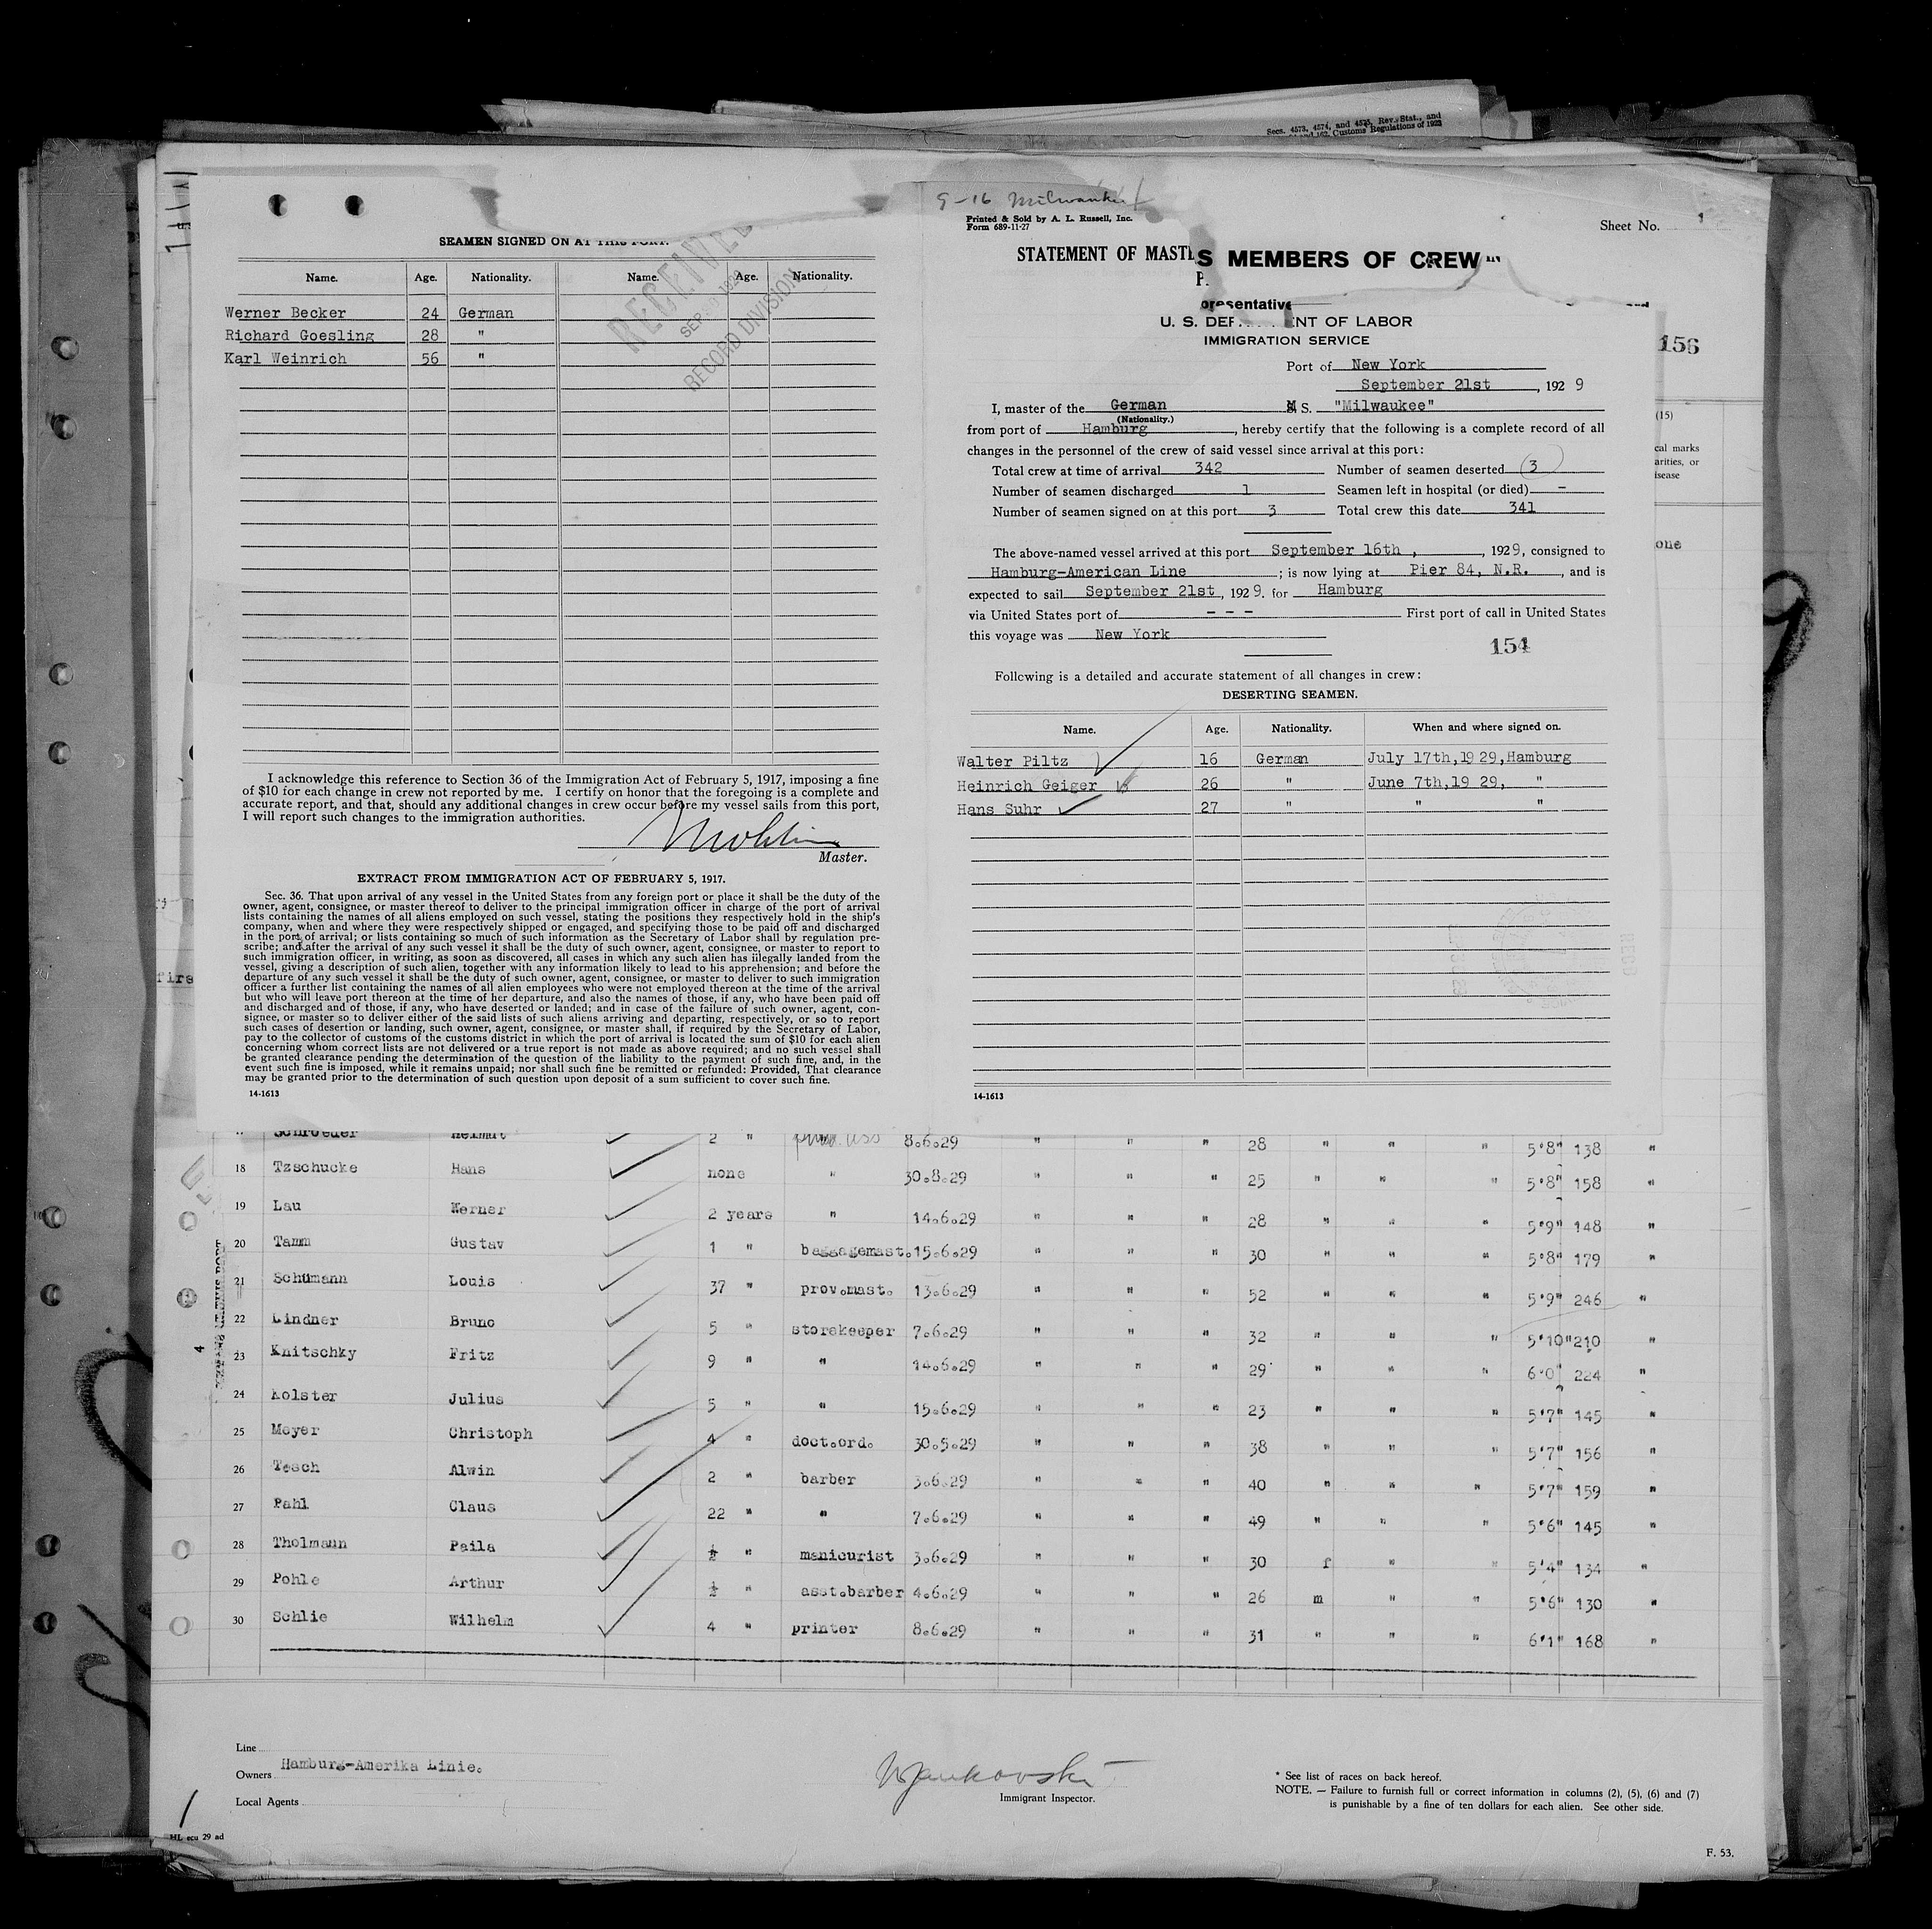 Secs. 4573, 4574, and 4575, Rev. Stat., and
Customs Regulations of 1923
SEAMEN SIGNED ON AT THIS PORT.
Name. Age. Nationality. Name. Age. Nationality.
RECEIVED
SEP
RECORD DIVISION
Werner Becker 24 German
Richard Goesling 28 "
Karl Weinrich 56 "
I acknowledge this reference to Section 36 of the Immigration Act of February 5, 1917, imposing a fine
of $10 for each change in crew not reported by me. I certify on honor that the foregoing is a complete and
accurate report, and that, should any additional changes in crew occur before my vessel sails from this port,
I will report such changes to the immigration authorities.
Master.
EXTRACT FROM IMMIGRATION ACT OF FEBRUARY 5, 1917.
Sec. 36. That upon arrival of any vessel in the United States from any foreign port or place it shall be the duty of the
owner, agent, consignee, or master thereof to deliver to the principal immigration officer in charge of the port of arrival
lists containing the names of all aliens employed on such vessel, stating the positions they respectively hold in the ship's
company, when and where they were respectively shipped or engaged, and specifying those to be paid off and discharged
in the port of arrival; or lists containing so much of such information as the Secretary of Labor shall by regulation pre-
scribe; and after the arrival of any such vessel it shall be the duty of such owner, agent, consignee, or master to report to
such immigration officer, in writing, as soon as discovered, all cases in which any such alien has illegally landed from the
vessel, giving a description of such alien, together with any information likely to lead to his apprehension; and before the
departure of any such vessel it shall be the duty of such owner, agent, consignee, or master to deliver to such immigration
officer a further list containing the names of all alien employees who were not employed thereon at the time of the arrival
but who will leave port thereon at the time of her departure, and also the names of those, if any, who have been paid off
and discharged and of those, if any, who have deserted or landed; and in case of the failure of such owner, agent, con-
signee, or master so to deliver either of the said lists of such aliens arriving and departing, respectively, or so to report
such cases of desertion or landing, such owner, agent, consignee, or master shall, if required by the Secretary of Labor,
pay to the collector of customs of the customs district in which the port of arrival is located the sum of $10 for each alien
concerning whom correct lists are not delivered or a true report is not made as above required; and no such vessel shall
be granted clearance pending the determination of the question of the liability to the payment of such fine, and, in the
event such fine is imposed, while it remains unpaid; nor shall such fine be remitted or refunded: Provided, That clearance
may be granted prior to the determination of such question upon deposit of a sum sufficient to cover such fine.
14-1613
9-16 Milwaukee
Printed & Sold by A. L. Russell, Inc.
Form 689-11-27
Sheet No. 1
STATEMENT OF MAST
S MEMBERS OF CREW
presentative
U. S. DEP NT OF LABOR
IMMIGRATION SERVICE
156
Port of New York
September 21st, 1929
I, master of the German M S. "Milwaukee"
(Nationality.)
from port of Hamburg, hereby certify that the following is a complete record of all
changes in the personnel of the crew of said vessel since arrival at this port:
Total crew at time of arrival 342 Number of seamen deserted 3
Number of seamen discharged 1 Seamen left in hospital (or died) -
Number of seamen signed on at this port 3 Total crew this date 341
The above-named vessel arrived at this port September 16th, , 1929, consigned to
Hamburg-American Line; is now lying at Pier 84, N.R., and is
expected to sail September 21st, 1929. for Hamburg
via United States port of - - - First port of call in United States
this voyage was New York
154
Following is a detailed and accurate statement of all changes in crew:
DESERTING SEAMEN.
Name. Age. Nationality. When and where signed on.
Walter Piltz 16 German July 17th,1929,Hamburg
Heinrich Geiger 26 " June 7th,1929, "
Hans Suhr 27 " " "
14-1613
(15)
cal marks
arities, or
isease
one
firs
Schroeder Helmut 2 " 8.6.29 " " " 28 " " " 5'8" 138 "
18 Tzschucke Hans none " 30.8.29 " " " 25 " " " 5'8" 158 "
19 Lau Werner 2 years " 14.6.29 " " " 28 " " " 5'9" 148 "
20 Tamm Gustav 1 " baggagemast. 15.6.29 " " " 30 " " " 5'8" 179 "
21 Schümann Louis 37 " prov.mast. 13.6.29 " " " 52 " " " 5'9" 246 "
22 Lindner Bruno 5 " storekeeper 7.6.29 " " " 32 " " " 5'10" 210 "
23 Knitschky Fritz 9 " " 14.6.29 " " " 29 " " " 6'0" 224 "
24 Kolster Julius 5 " " 15.6.29 " " " 23 " " " 5'7" 145 "
25 Meyer Christoph 4 " doct.ord. 30.5.29 " " " 38 " " " 5'7" 156 "
26 Tesch Alwin 2 " barber 3.6.29 " " " 40 " " " 5'7" 159 "
27 Pahl Claus 22 " " 7.6.29 " " " 49 " " " 5'6" 145 "
28 Tholmann Paila ½ " manicurist 3.6.29 " " " 30 f " " 5'4" 134 "
29 Pohle Arthur ½ " asst.barber 4.6.29 " " " 26 m " " 5'6" 130 "
30 Schlie Wilhelm 4 " printer 8.6.29 " " " 31 " " " 6'1" 168 "
Line
Owners Hamburg-Amerika Linie.
Local Agents
Immigrant Inspector.
* See list of races on back hereof.
NOTE. — Failure to furnish full or correct information in columns (2), (5), (6) and (7)
is punishable by a fine of ten dollars for each alien. See other side.
HL ecu 29 ad
F. 53.